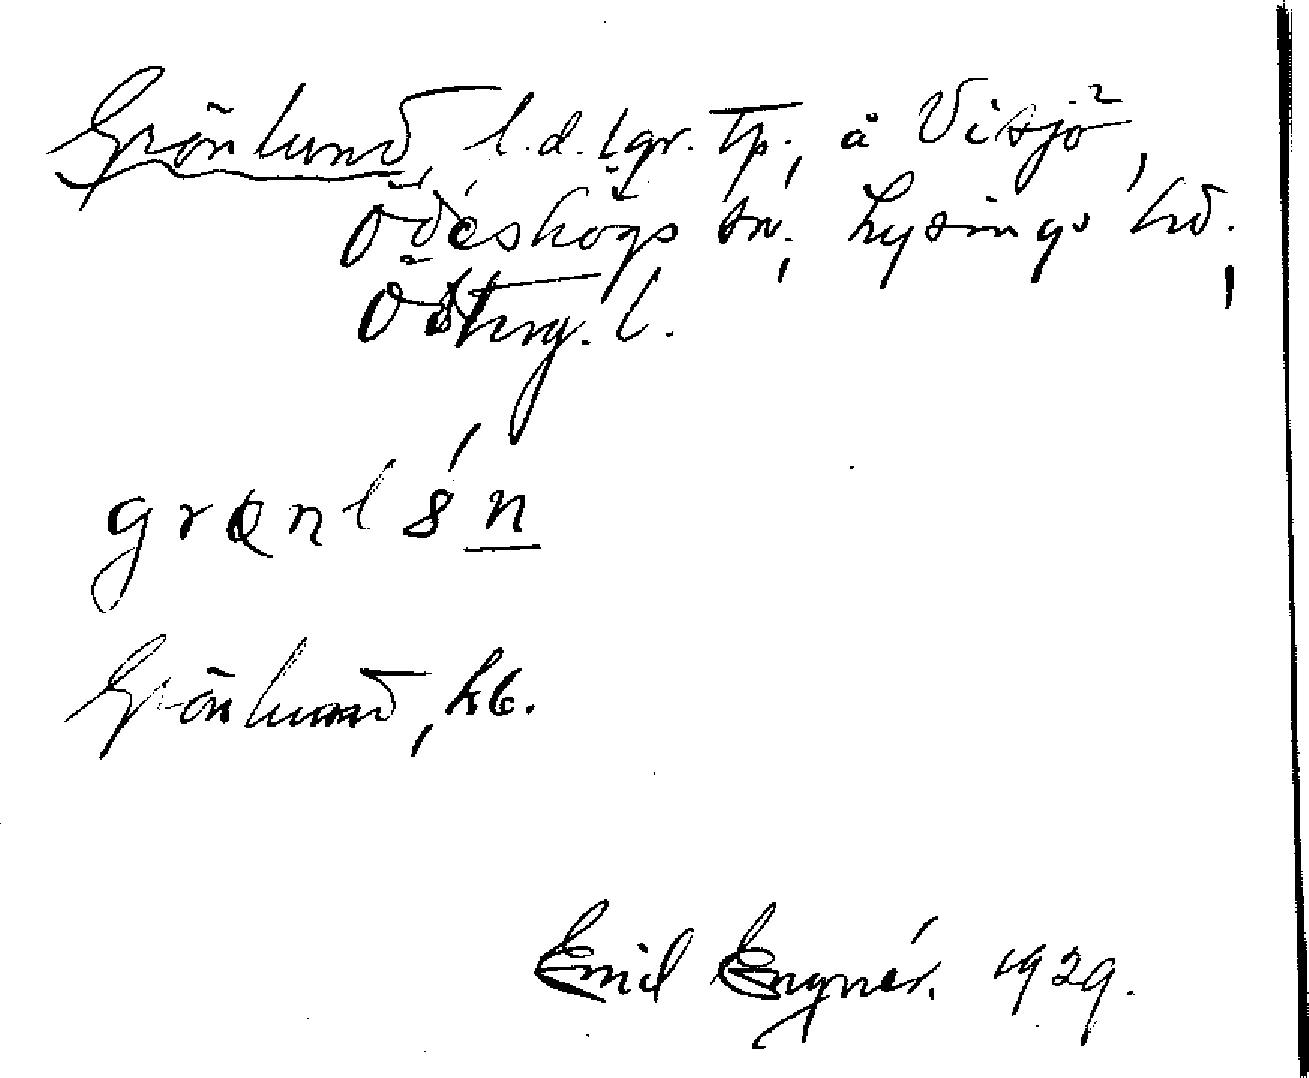 Grönlund, l.d. lgr. Tp., å Visjö²,
Ödeshögs sn., Lysings hd.,
Österg. l.
grønlsn
Grönlund, kb.
Emil Engnér. 1929.